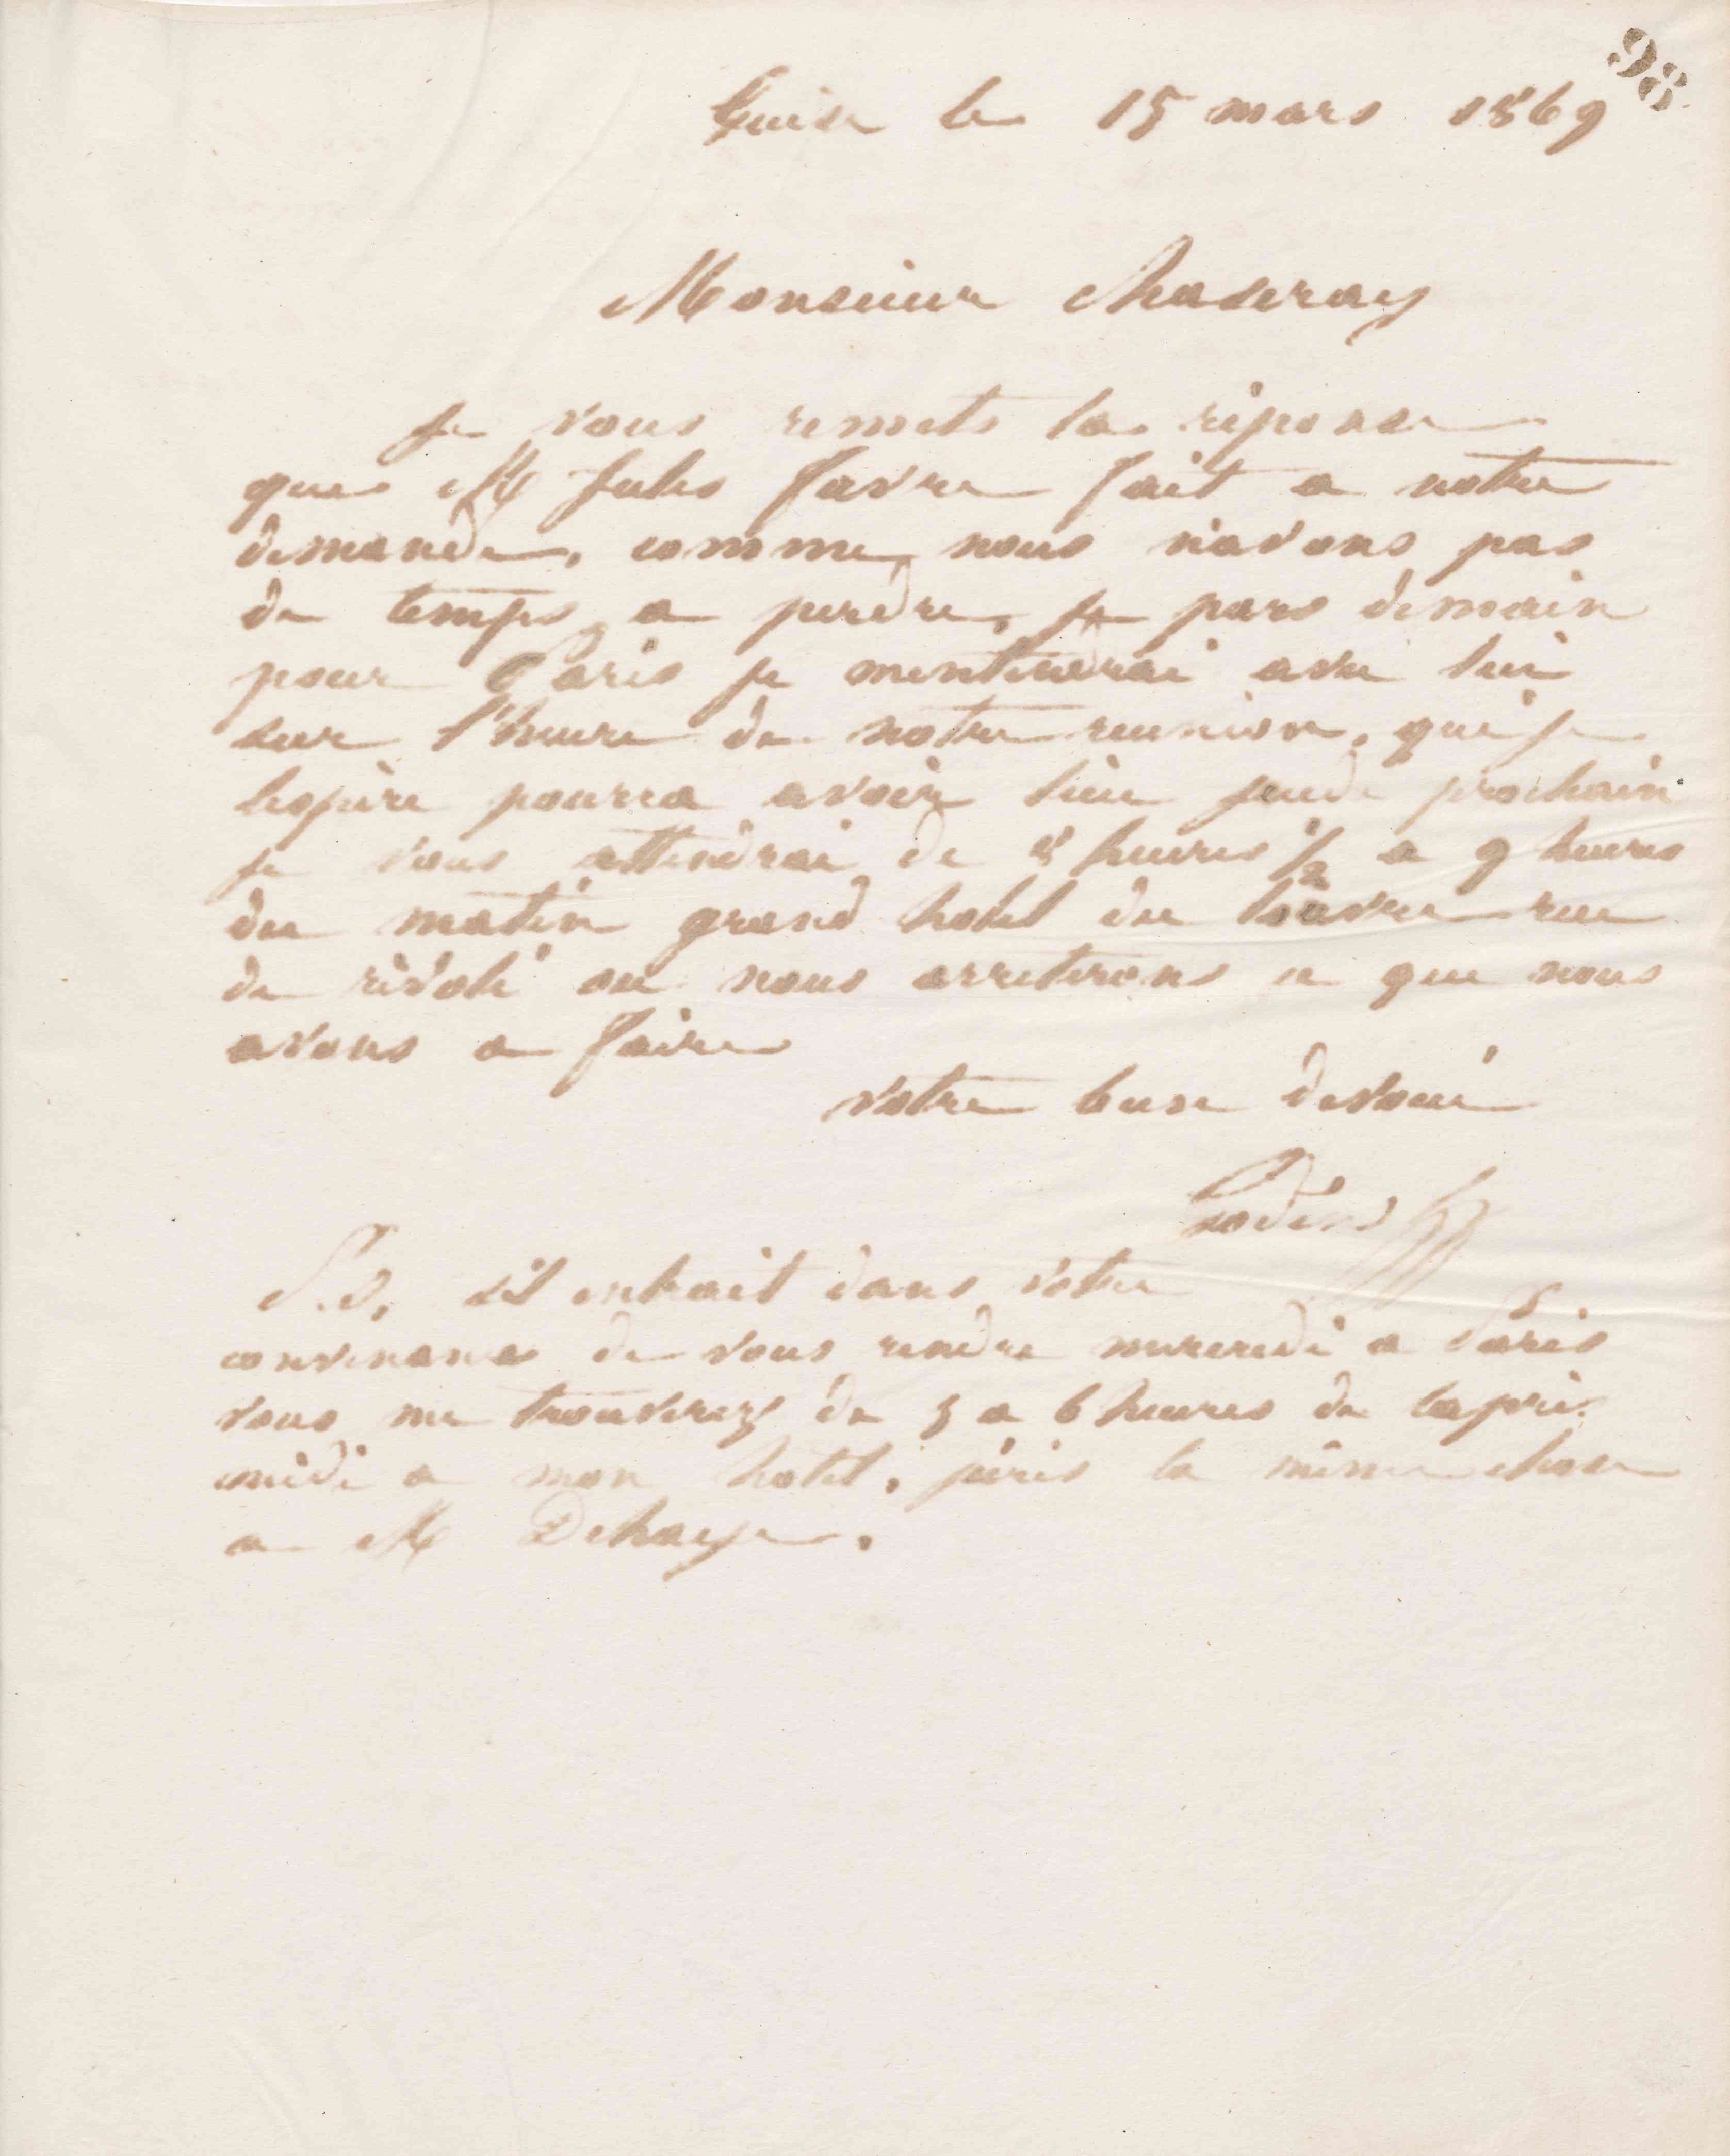 98
Guise le 15 mars 1869
Monsieur Chaseray
Je vous remets la réponse
que M Jules Favre fait a notre
demande, comme nous n'avons pas
de temps a perdre, je pars demain
pour Paris je mentendrai avec lui
sur l'heure de notre reunion, que je
lespère pourra avoir lieu jeudi prochain
je vous attendrai de 8 heures 1/2 a 9 heures
du matin grand hotel du louvre rue
de rivoli ou nous arreterons ce que nous
avons a faire
votre bien devoué
Godin
P.S, s'il entrait dans votre
convenance de vous rendre mercredi a Paris
vous me trouverez de 5 a 6 heures de laprès
midi a mon hotel, j'écris la même chose
a M Dehaye.